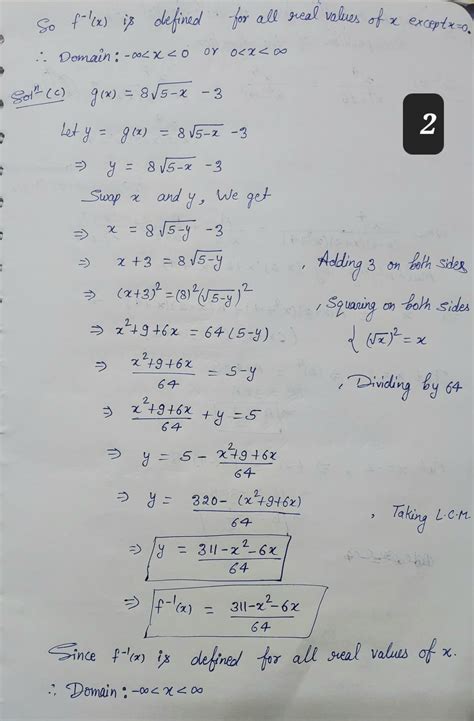 So f⁻¹(x) is defined for all real values of x except x=0.
∴ Domain: -∞<x<0 or 0<x<∞
Solⁿ-(c) g(x) = 8√(5-x) -3
2
Let y = g(x) = 8√(5-x) -3
⇒ y = 8√(5-x) -3
Swap x and y, We get
⇒ x = 8√(5-y) -3
⇒ x+3 = 8√(5-y) , Adding 3 on both sides
⇒ (x+3)² = (8)²(√(5-y))² , Squaring on both sides
⇒ x²+9+6x = 64(5-y) { (√x)² = x
⇒ (x²+9+6x)/64 = 5-y , Dividing by 64
⇒ (x²+9+6x)/64 + y = 5
⇒ y = 5 - (x²+9+6x)/64
⇒ y = (320-(x²+9+6x))/64 , Taking L.C.M.
⇒ y = (311-x²-6x)/64
⇒ f⁻¹(x) = (311-x²-6x)/64
Since f⁻¹(x) is defined for all real values of x.
∴ Domain: -∞<x<∞